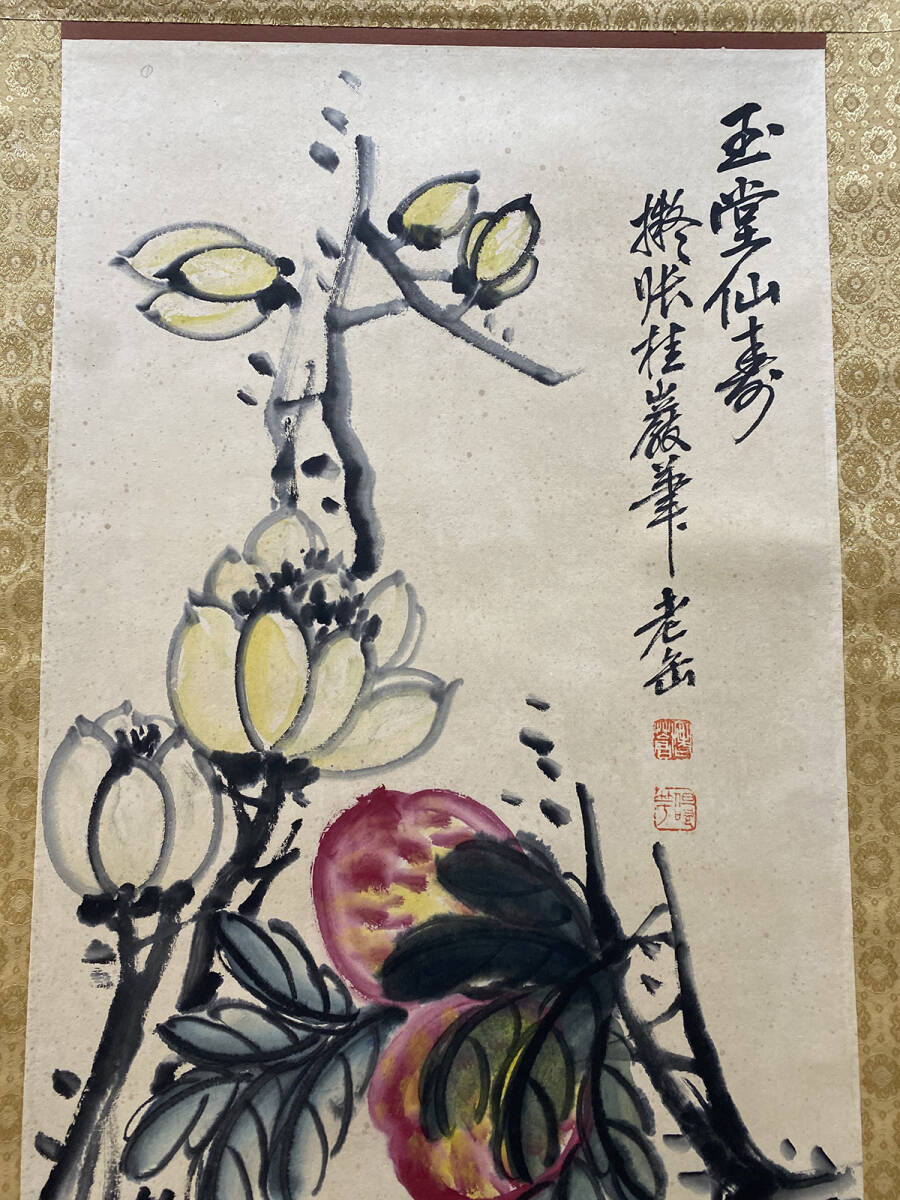 玉堂仙壽
擬張桂巖筆
老缶